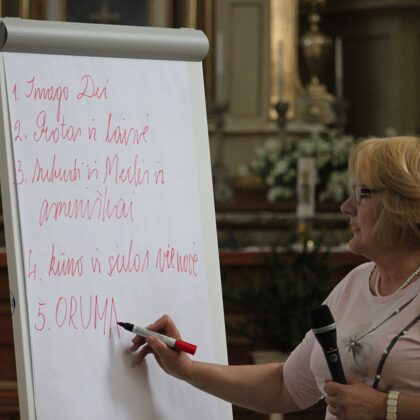 1. Imago Dei
2. Protas ir laisvė
3. Sukurti ir Meilei ir
asmeniškai
4. kūno ir sielos vienovė
5. ORUMA